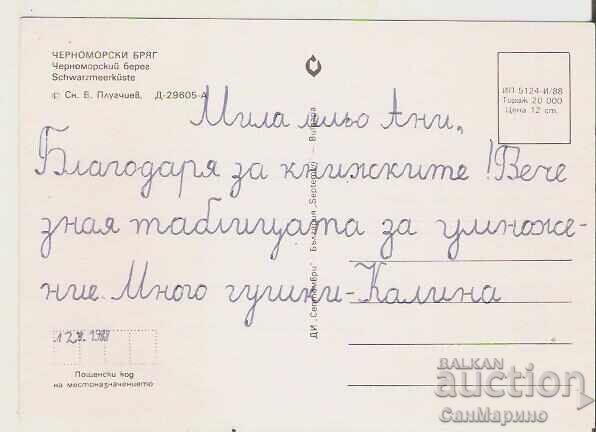 ЧЕРНОМОРСКИ БРЯГ
Черноморский берег
Schwarzmeerküste
© Ск. В. Плугчиев. Д-29605-А
ИП 5124-И/88
Тираж 20 000
Цена 12 ст.
Мила лльо Ани,
Благодаря за книжките! Вече
зная таблицата за умноже-
ние. Много гушки-Калина
ДИ „Септември“ България „Septemvri“ — Bulgaria
Пощенски код
на местоназначението
BALKAN
auction
СанМарино